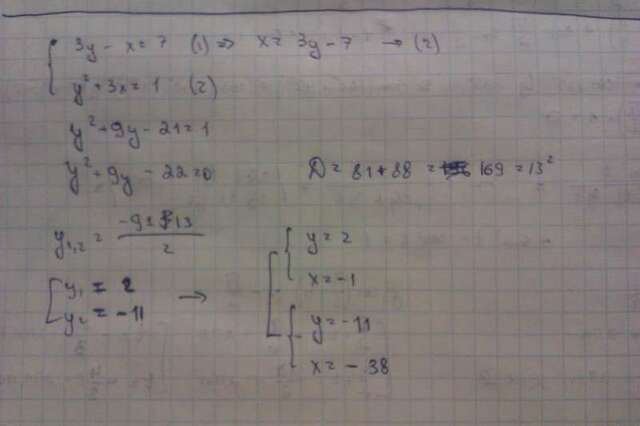 3y - x = 7 (1) => x = 3y - 7 → (2)
y² + 3x = 1 (2)
y² + 9y - 21 = 1
y² + 9y - 22 = 0 D = 81 + 88 = 169 = 13²
y₁,₂ = (-9 ± 13) / 2
y₁ = 2
y₂ = -11 →
y = 2
x = -1
y = -11
x = -38